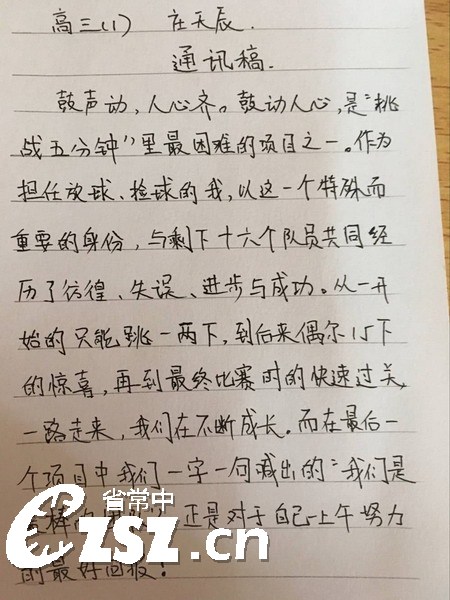 高三(1) 庄天辰.
通讯稿.
鼓声动，人心齐。鼓动人心，是“挑
战五分钟”里最困难的项目之一。作为
担任放球、捡球的我，以这一个特殊而
重要的身份，与剩下十六个队员共同经
历了彷徨、失误、进步与成功。从一开
始的只能跳一两下，到后来偶尔15下
的惊喜，再到最终比赛时的快速过关，
一路走来，我们在不断成长。而在最后一
个项目中我们一字一句喊出的“我们是
棒的 正是对于自己一上午努力
的最好回报！
省常中
czsz.cn